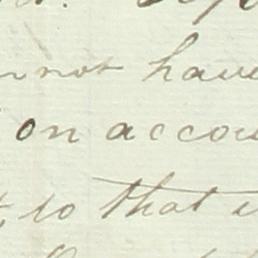 not have
on accou
to that i